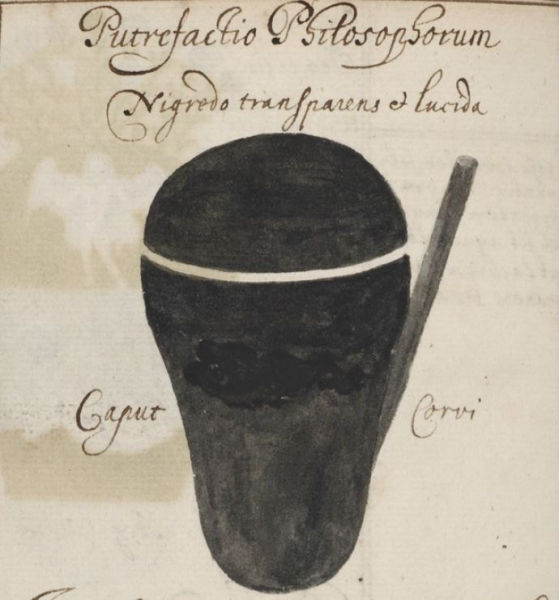 Putrefactio Philosophorum
Nigredo transparens & lucida
Caput Corvi